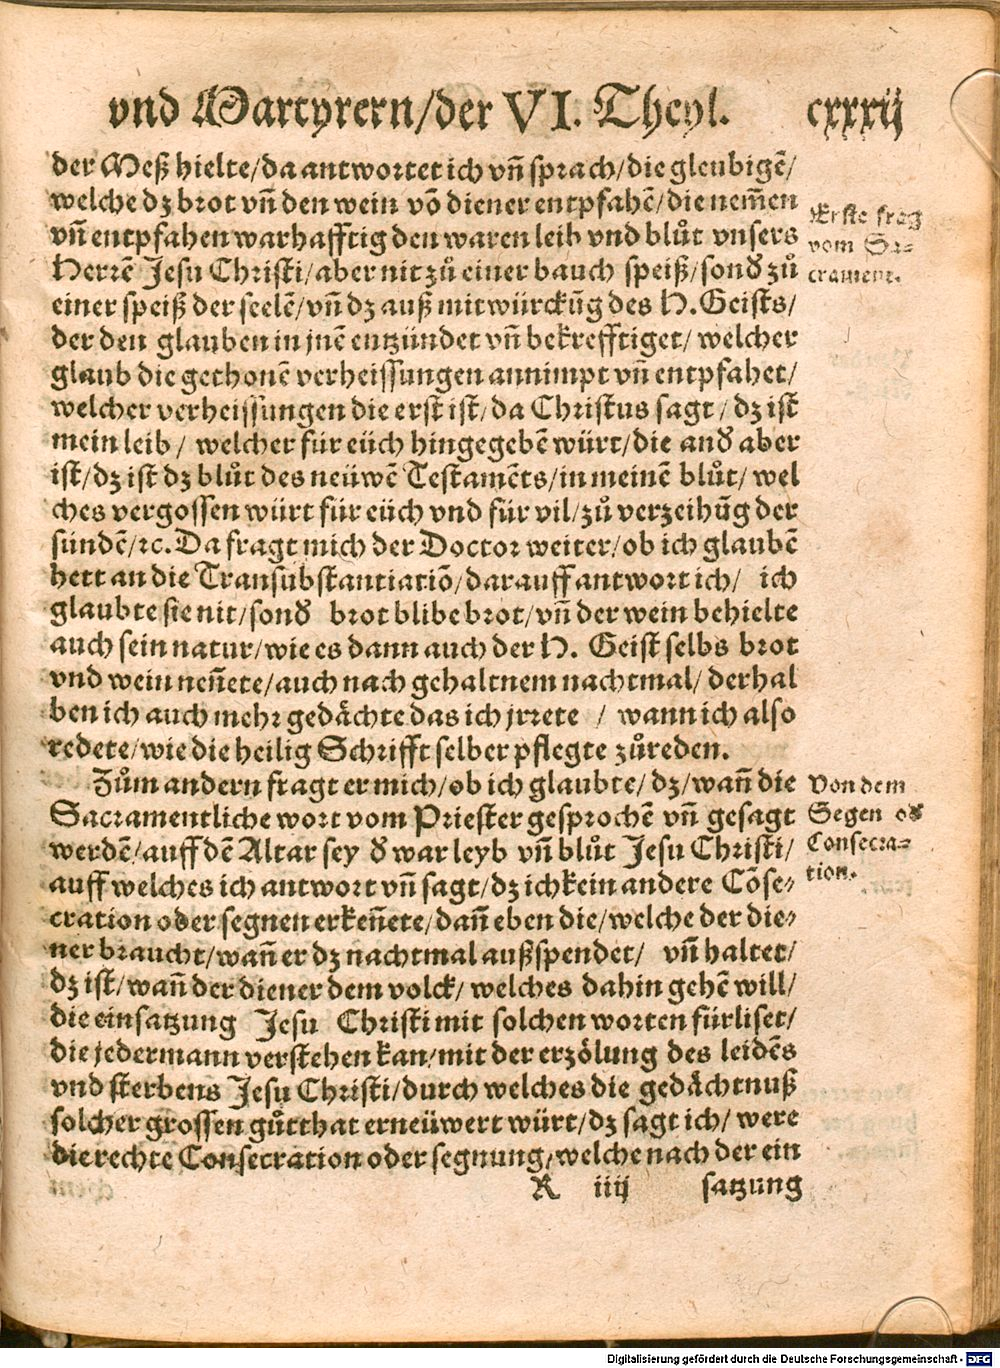 vnd Martyrern/der VI. Theyl. cxxxij
der Meß hielte/da antwortet ich vn̄ sprach/die gleubigē/
welche dz brot vn̄ den wein vō diener entpfahē/die nem̄en
vn̄ entpfahen warhafftig den waren leib vnd blůt vnsers
Herrē Jesu Christi/aber nit zů einer bauch speiß/sond' zů
einer speiß der seelē/vn̄ dz auß mitwürckūg des H. Geists/
der den glauben in jnē entzündet vn̄ bekrefftiget/ welcher
glaub die gethonē verheissungen annimpt vn̄ entpfahet/
welcher verheissungen die erst ist/da Christus sagt/dz ist
mein leib/ welcher für eüch hingegebē würt/die and' aber
ist/dz ist dz blůt des neüwē Testamēts/in meinē blůt/wel
ches vergossen würt für eüch vnd für vil/zů verzeihūg der
sündē/ꝛc. Da fragt mich der Doctor weiter/ob ich glaubē
hett an die Transubstantiatiō/darauff antwort ich/ ich
glaubte sie nit/sond' brot blibe brot/vn̄ der wein behielte
auch sein natur/wie es dann auch der H. Geist selbs brot
vnd wein nen̄ete/auch nach gehaltnem nachtmal/derhal
ben ich auch mehr gedächte das ich jrrete / wann ich also
redete/wie die heilig Schrifft selber pflegte zůreden.
Zům andern fragt er mich/ob ich glaubte/dz/wan̄ die
Sacramentliche wort vom Priester gesprochē vn̄ gesagt
werdē/auff dē Altar sey d' war leyb vn̄ blůt Jesu Christi/
auff welches ich antwort vn̄ sagt/dz ich kein andere Cōse-
cration oder segnen erken̄ete/dan̄ eben die/welche der die-
ner braucht/wan̄ er dz nachtmal außspendet/ vn̄ haltet/
dz ist/wan̄ der diener dem volck/ welches dahin gehē will/
die einsatzung Jesu Christi mit solchen worten fürliset/
die jedermann verstehen kan/mit der erzölung des leidēs
vnd sterbens Jesu Christi/durch welches die gedächtnuß
solcher grossen gůtthat erneüwert würt/dz sagt ich/were
die rechte Consecration oder segnung/welche nach der ein
R iiij satzung
Erste frag
vom Sa-
crament.
Von dem
Segen od'
Consecra-
tion.
Digitalisierung gefördert durch die Deutsche Forschungsgemeinschaft - DFG